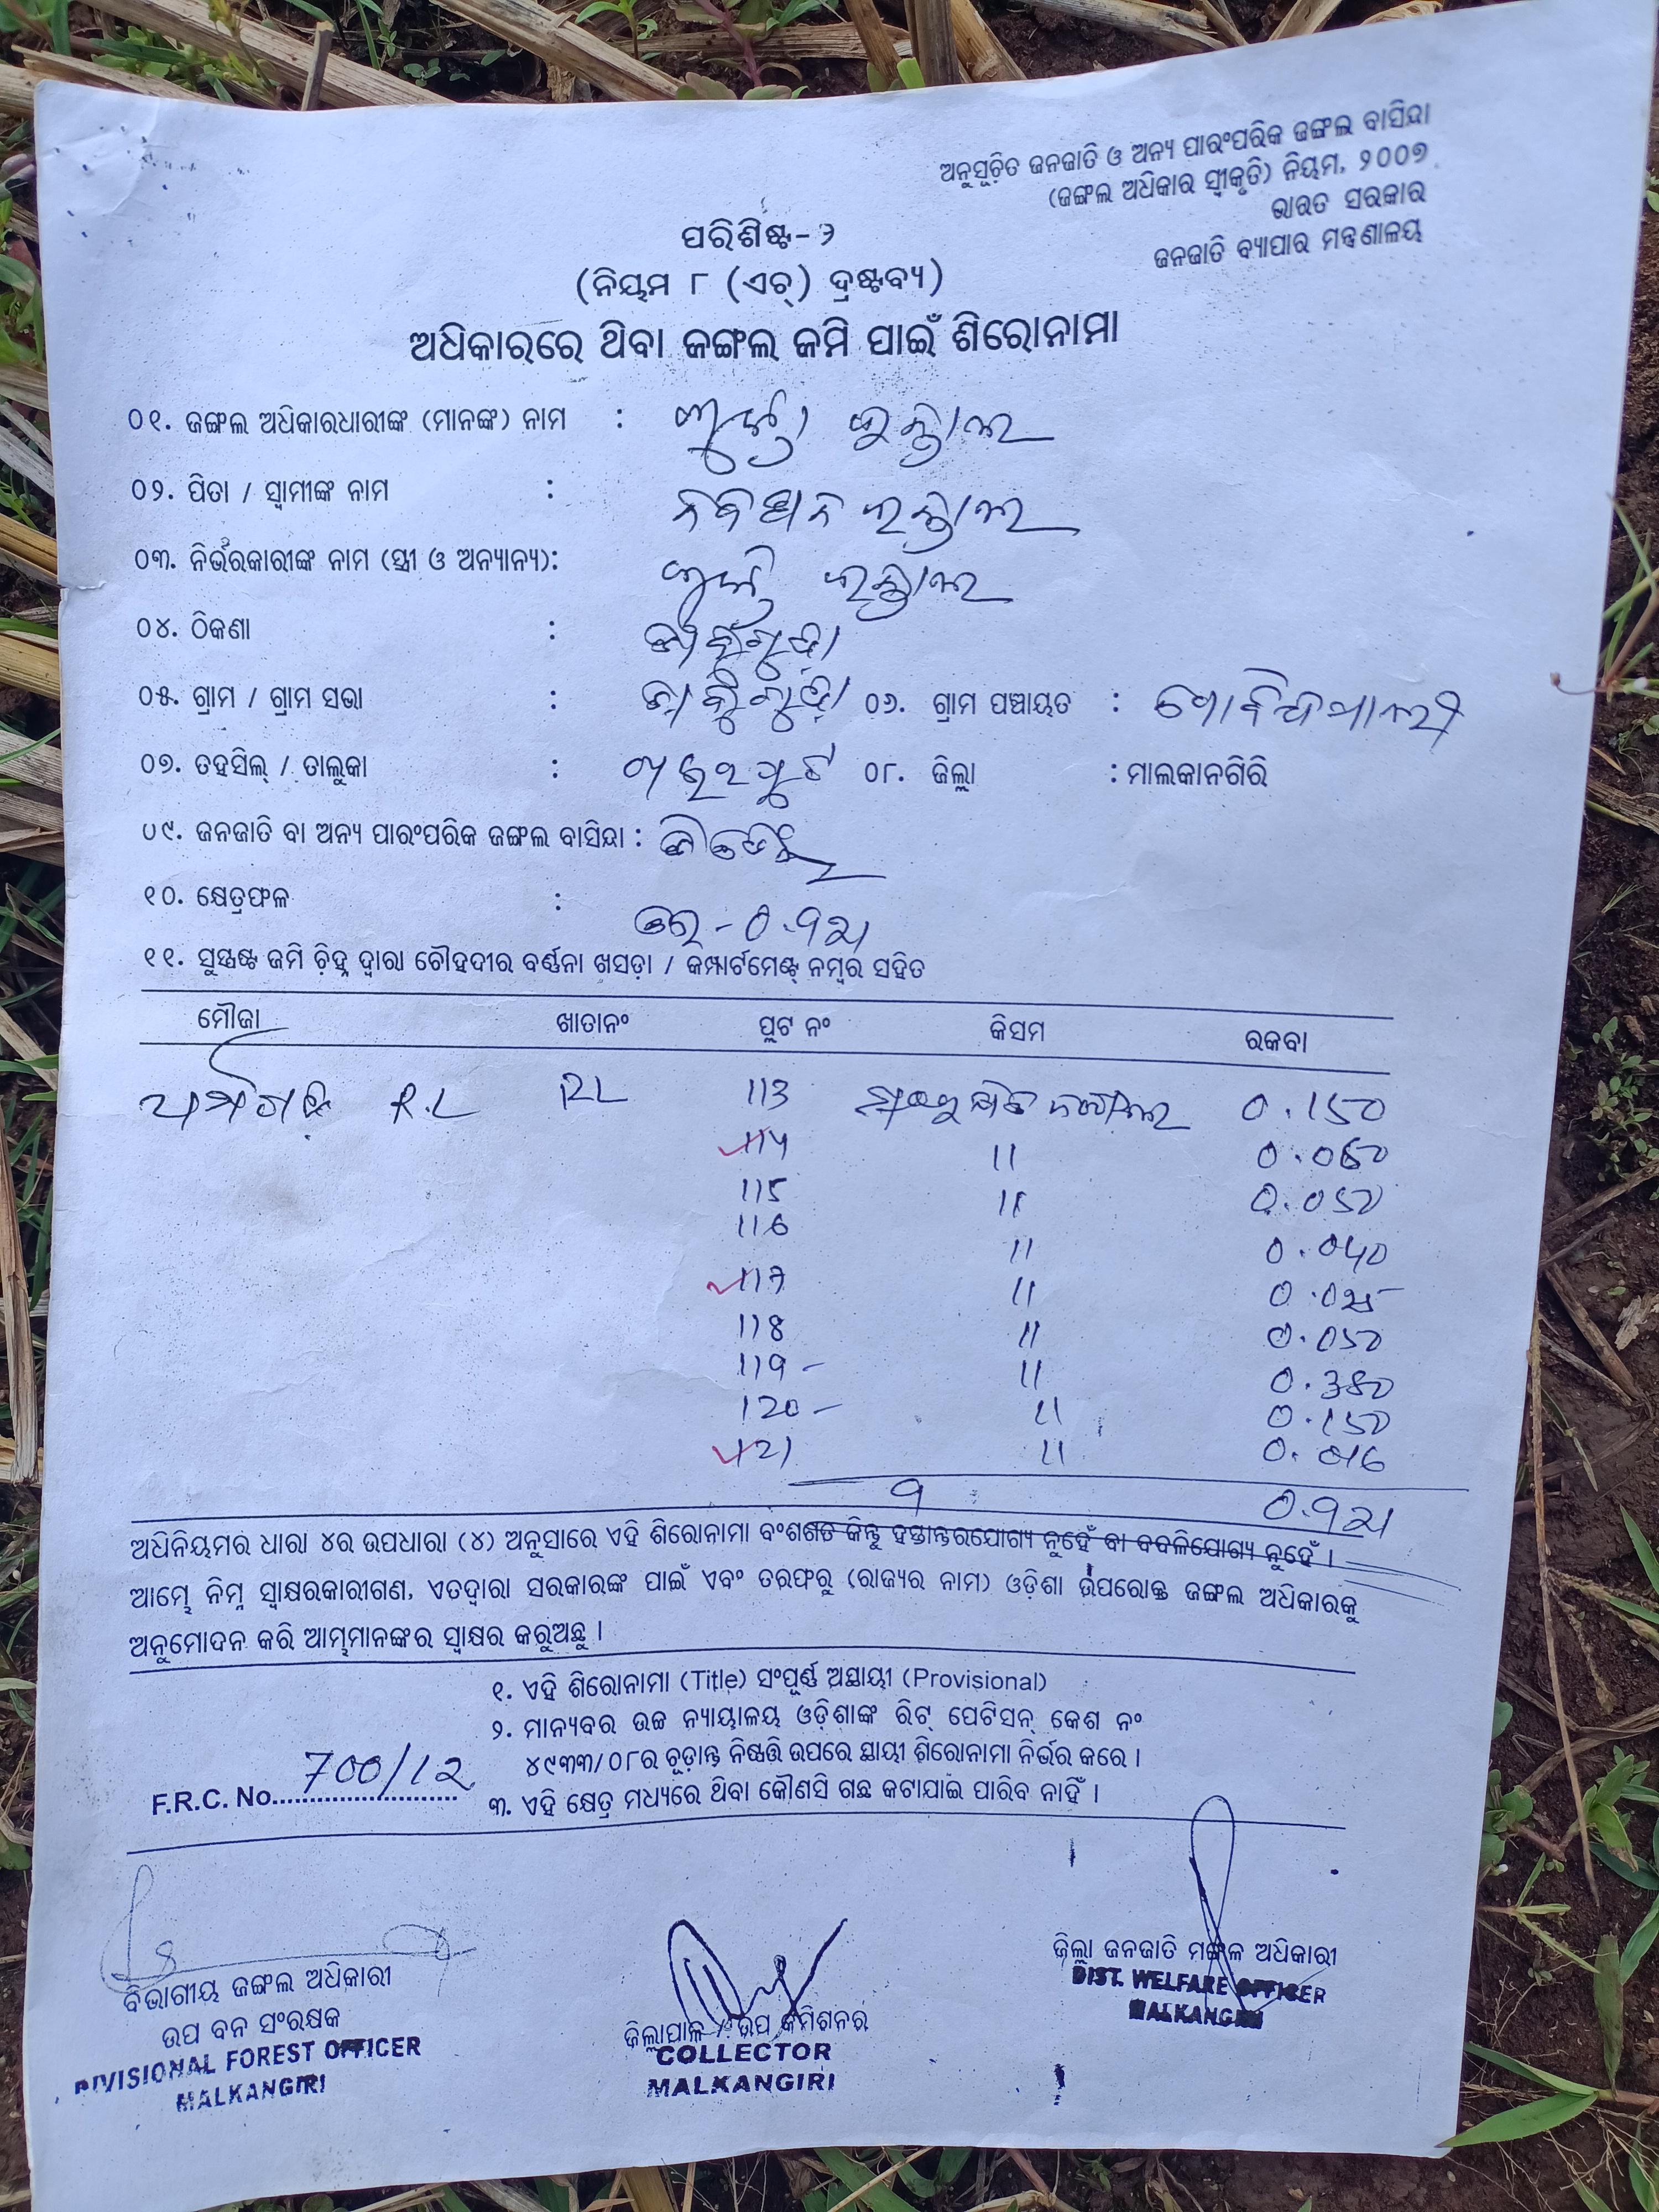 ଅନୁସୂଚିତ ଜନଜାତି ଓ ଅନ୍ୟ ପାରଂପରିକ ଜଙ୍ଗଲ ବାସିନ୍ଦା
(ଜଙ୍ଗଲ ଅଧିକାର ସ୍ୱୀକୃତି) ନିୟମ, ୨୦୦୭
ଭାରତ ସରକାର
ଜନଜାତି ବ୍ୟାପାର ମନ୍ତ୍ରଣାଳୟ
ପରିଶିଷ୍ଟ-୨
(ନିୟମ ୮ (ଏଚ୍) ଦ୍ରଷ୍ଟବ୍ୟ)
ଅଧିକାରରେ ଥିବା ଜଙ୍ଗଲ ଜମି ପାଇଁ ଶିରୋନାମା
୦୧. ଜଙ୍ଗଲ ଅଧିକାରଧାରୀଙ୍କ (ମାନଙ୍କ) ନାମ :
୦୨. ପିତା / ସ୍ୱାମୀଙ୍କ ନାମ :
୦୩. ନିର୍ଭରକାରୀଙ୍କ ନାମ (ସ୍ତ୍ରୀ ଓ ଅନ୍ୟାନ୍ୟ):
୦୪. ଠିକଣା :
୦୫. ଗ୍ରାମ / ଗ୍ରାମ ସଭା : ୦୬. ଗ୍ରାମ ପଞ୍ଚାୟତ :
୦୭. ତହସିଲ୍ / ତାଲୁକା : ୦୮. ଜିଲ୍ଲା : ମାଲକାନଗିରି
୦୯. ଜନଜାତି ବା ଅନ୍ୟ ପାରଂପରିକ ଜଙ୍ଗଲ ବାସିନ୍ଦା :
୧୦. କ୍ଷେତ୍ରଫଳ : - 0.921
୧୧. ସୁସ୍ପଷ୍ଟ ଜମି ଚିହ୍ନ ଦ୍ୱାରା ଚୌହଦୀର ବର୍ଣ୍ଣନା ଖସଡ଼ା / କମ୍ପାର୍ଟମେଣ୍ଟ୍ ନମ୍ବର ସହିତ
ମୌଜା ଖାତାନଂ ପ୍ଲଟ ନଂ କିସମ ରକବା
R.L RL 113 0.150
114 11 0.060
115 11 0.050
116 11 0.040
117 11 0.025
118 11 0.050
119 - 11 0.380
120 - 11 0.150
121 11 0.016
9 0.921
ଅଧିନିୟମର ଧାରା ୪ର ଉପଧାରା (୪) ଅନୁସାରେ ଏହି ଶିରୋନାମା ବଂଶଗତ କିନ୍ତୁ ହସ୍ତାନ୍ତରଯୋଗ୍ୟ ନୁହେଁ ବା ବଦଳିଯୋଗ୍ୟ ନୁହେଁ ।
ଆମ୍ଭେ ନିମ୍ନ ସ୍ୱାକ୍ଷରକାରୀଗଣ, ଏତଦ୍ୱାରା ସରକାରଙ୍କ ପାଇଁ ଏବଂ ତରଫରୁ (ରାଜ୍ୟର ନାମ) ଓଡ଼ିଶା ଉପରୋକ୍ତ ଜଙ୍ଗଲ ଅଧିକାରକୁ
ଅନୁମୋଦନ କରି ଆମ୍ଭମାନଙ୍କର ସ୍ୱାକ୍ଷର କରୁଅଛୁ ।
୧. ଏହି ଶିରୋନାମା (Title) ସଂପୂର୍ଣ୍ଣ ଅସ୍ଥାୟୀ (Provisional)
୨. ମାନ୍ୟବର ଉଚ୍ଚ ନ୍ୟାୟାଳୟ ଓଡ଼ିଶାଙ୍କ ରିଟ୍ ପେଟିସନ୍ କେଶ ନଂ
୪୯୩୩/୦୮ର ଚୂଡ଼ାନ୍ତ ନିଷ୍ପତ୍ତି ଉପରେ ସ୍ଥାୟୀ ଶିରୋନାମା ନିର୍ଭର କରେ ।
F.R.C. No. 700/12
୩. ଏହି କ୍ଷେତ୍ର ମଧ୍ୟରେ ଥିବା କୌଣସି ଗଛ କଟାଯାଇ ପାରିବ ନାହିଁ ।
ବିଭାଗୀୟ ଜଙ୍ଗଲ ଅଧିକାରୀ
ଉପ ବନ ସଂରକ୍ଷକ
DIVISIONAL FOREST OFFICER
MALKANGIRI
ଜିଲ୍ଲାପାଳ / ଉପ କମିଶନର
COLLECTOR
MALKANGIRI
ଜିଲ୍ଲା ଜନଜାତି ମଙ୍ଗଳ ଅଧିକାରୀ
DIST. WELFARE OFFICER
MALKANGIRI